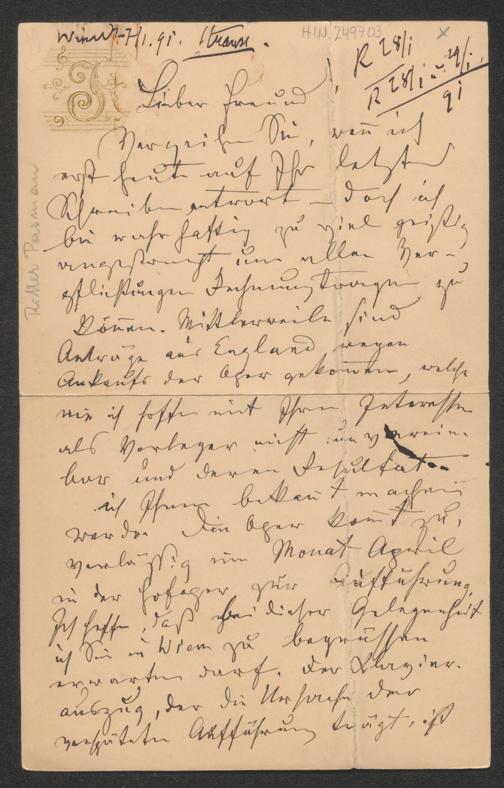 Wien 7/1.91. Strauss.
H.I.N. 249703
R 28/i
R 28/i u. 29/i
91
Ritter Pasman
J
Lieber Freund!
Verzeihen Sie, weñ ich
erst heute auf Ihr letztes
Schreiben antworte – doch ich
bin wahrhaftig zu viel geistig
angestrengt um allen Ver-
pflichtungen Rechnung tragen zu
köñen. Mittlerweile sind
Anträge aus England wegen
Ankaufs der Oper gekom̄en, welche
wie ich hoffe mit Ihren Interessen
als Verleger nicht unverein-
bar und deren Resultat
ich Ihnen bekañt machen
werde. Die Oper kom̄t zu-
verlässig im Monat April
in der Hofoper zur Aufführung.
Ich hoffe, daß bei dieser Gelegenheit
ich Sie in Wien zu begrüssen
erwarten darf. Der Klavier-
auszug, der die Ursache der
verspäteten Aufführung trägt, ist